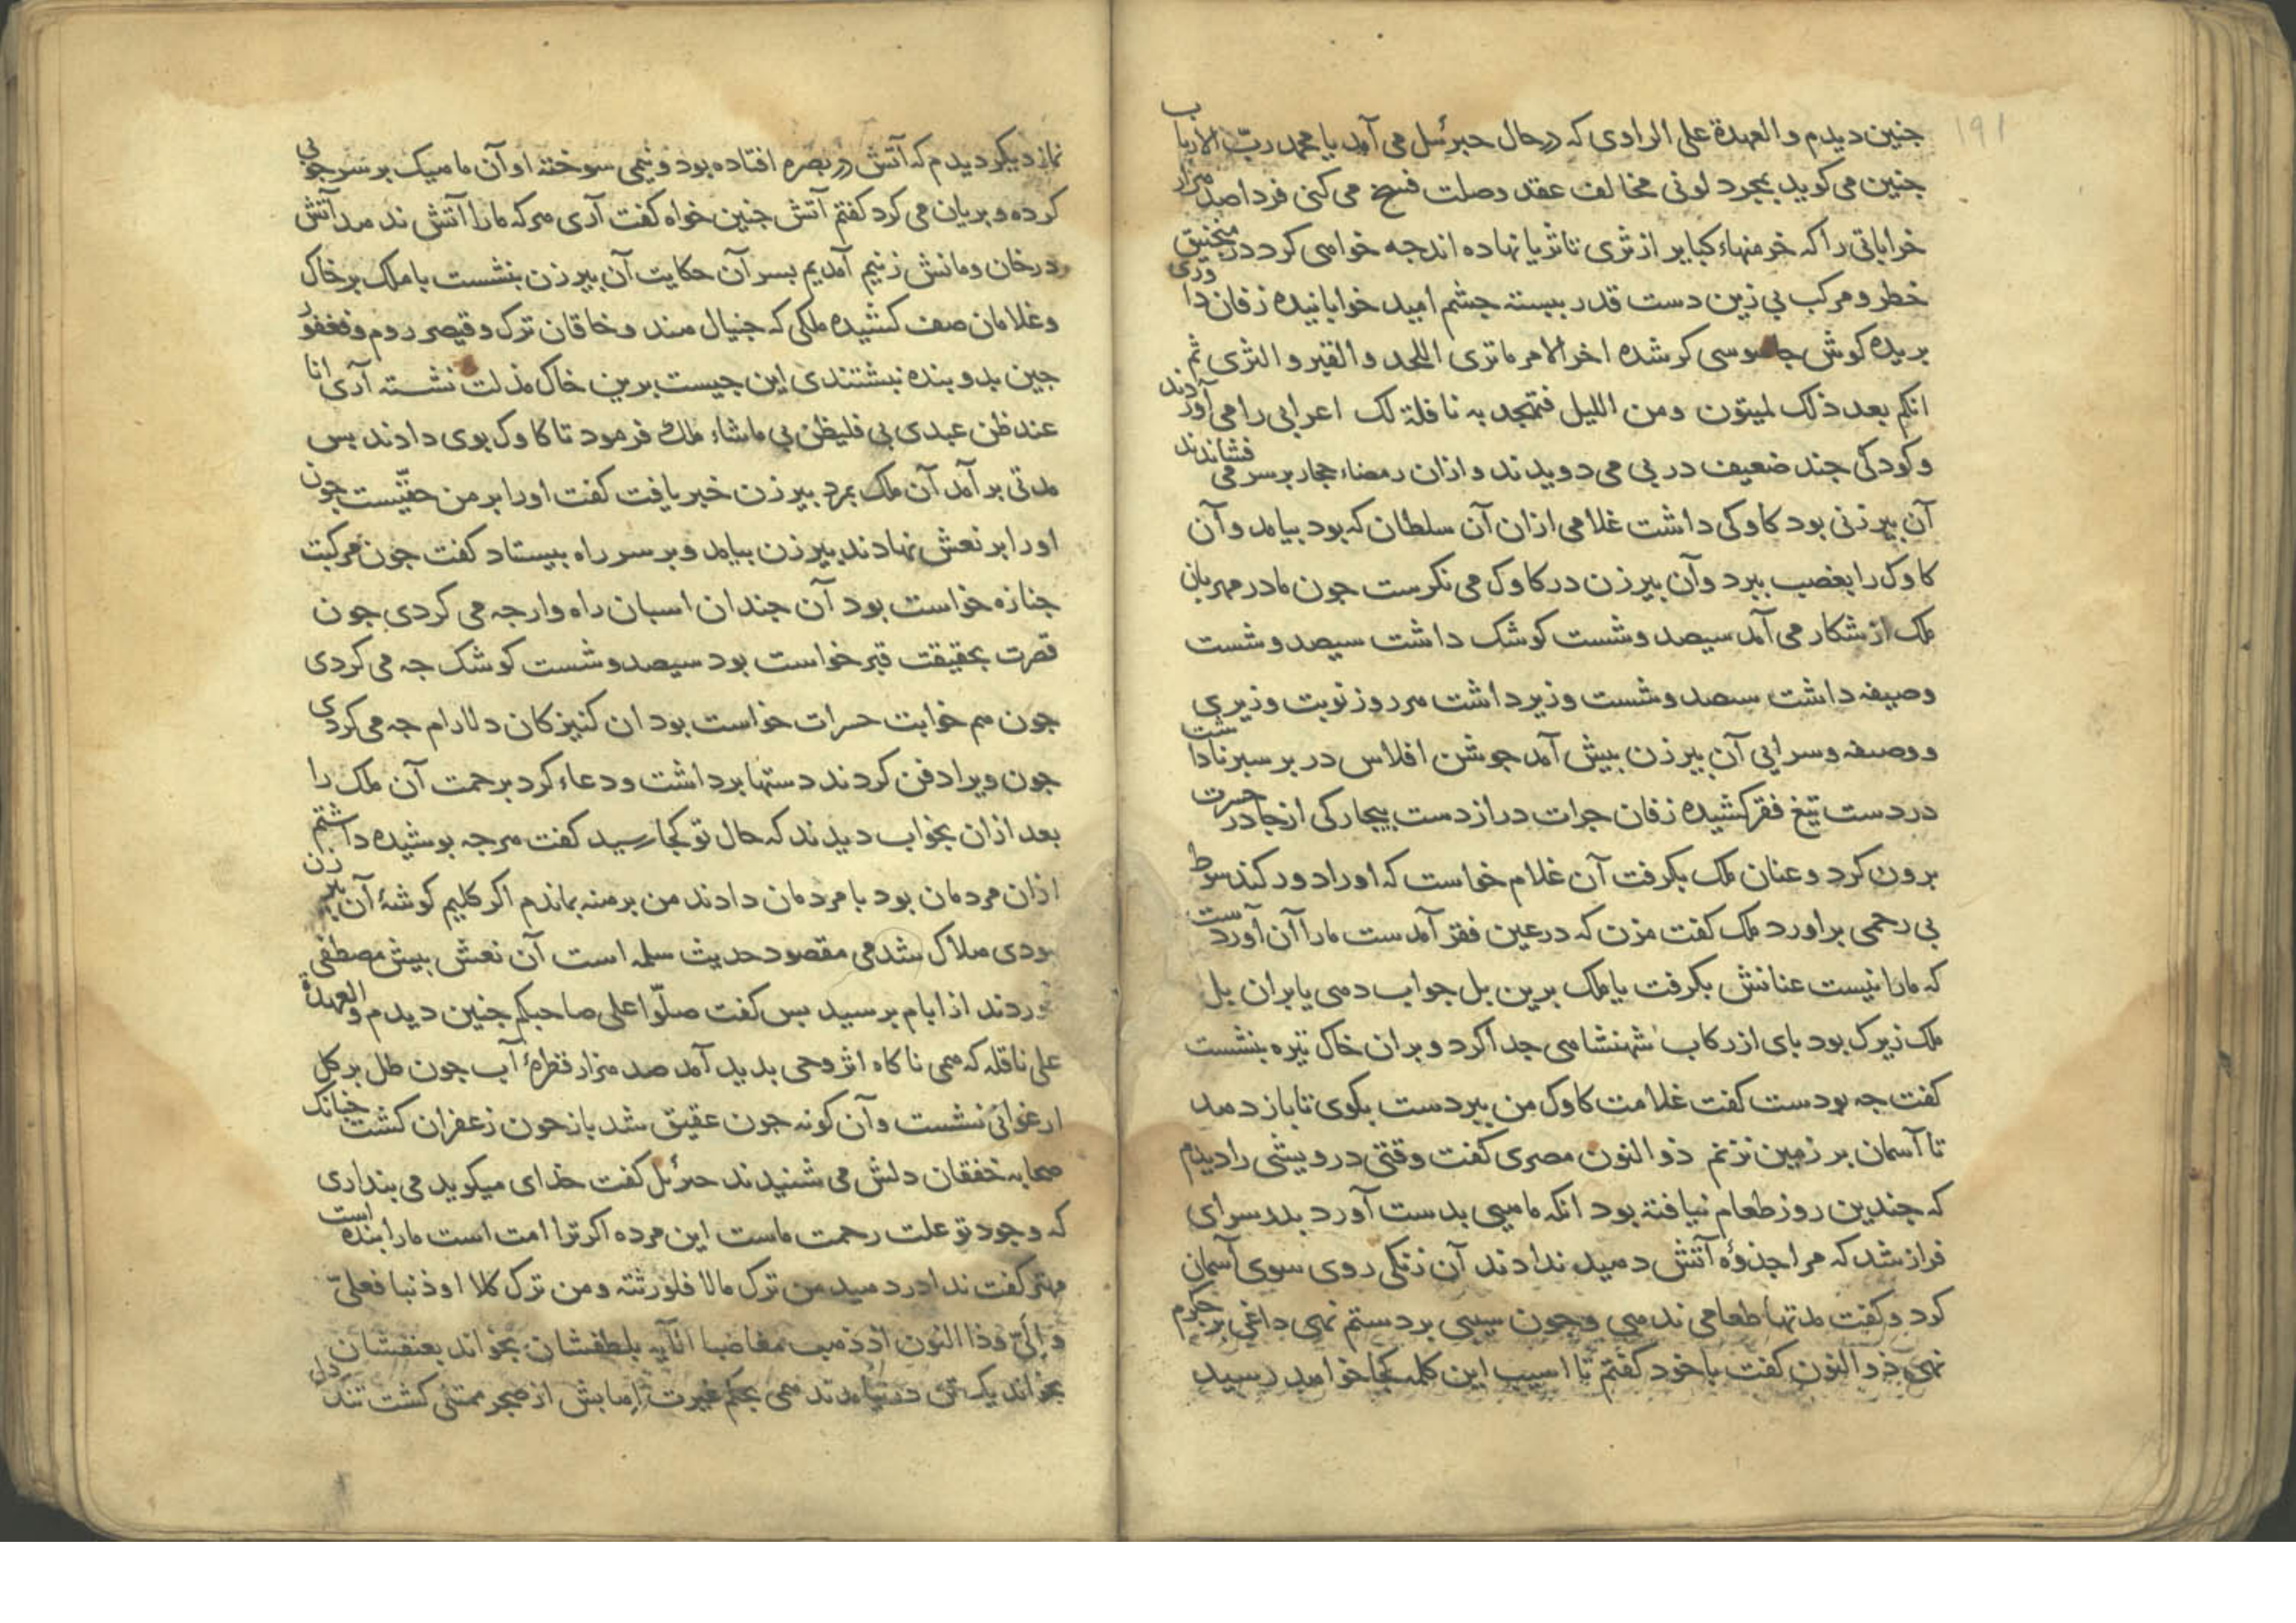 ۱۹۱
جنین دیدم والعهدة علی الراوی که درحال جبرئیل می آمد یا محمد ربّ الارباب
جنین می کوید بمجرد لونی مخالف عقد وصلت فسخ می کنی فردا صد هزار
خراباتی را که خرمنهاء کبایر از ثری تا ثریا نهاده اند جه خواهی کرد در منجنیق
خطر و مرکب بی زین دست قدر ببسته جشم امید خوابانیده زفان داوری
بریده کوش جاسوسی کر شده اخر الامر ماتری اللحد والقبر والثری ثم
انکم بعد ذلک لمیتون ومن اللیل فتهجد به نافلة لک اعرابی را می آوردند
وکودکی جند ضعیف در بی می دویدند وازان رمضاء حجار بر سر می فشاندند
آن بیرزنی بود کاوکی داشت غلامی ازان آن سلطان که بود بیامد وآن
کاوک را بغصب ببرد وآن بیرزن در کاوک می نکرست جون مادر مهربان
ملک از شکار می آمد سیصد وشست کوشک داشت سیصد وشست
وصیفه داشت سصد وشست وزیر داشت هر روز نوبت وزیری
ووصیفه وسرایی آن بیرزن بیش آمد جوشن افلاس در بر سبر ناداشت
در دست تیغ فقر کشیده زفان جرات دراز دست بیجارکی از جادر حسرت
برون کرد وعنان ملک بکرفت آن غلام خواست که اورا دور کند سوط
بی رحمی براورد ملک کفت مزن که در عین فقر آمدست مارا آن آوردست
که مارا نیست عنانش بکرفت یا ملک برین بل جواب دهی یا بران بل
ملک زیرک بود بای از رکاب شهنشاهی جدا کرد وبران خاک تیره بنشست
کفت جه بودست کفت غلامت کاوک من ببردست بکوی تا باز دهد
تا آسمان بر زمین نزنم ذوالنون مصری کفت وقتی درویشی را دیدم
که جندین روز طعام نیافته بود انکه ماهیی بدست آورد بدر سرای
فراز شد که مرا جذوهٔ آتش دهید ندادند آن زنکی روی سوی آسمان
کرد وکفت مدتها طعامی ندهی وجون سیبی بر دستم نهی داغی بر جکرم
نهی ذوالنون کفت با خود کفتم تا اسیب این کلمه کجا خواهد رسید
نماز دیکر دیدم که آتش در بصره افتاده بود ونیمی سوخته او آن ماهیک بر سر جوبی
کرده وبریان می کرد کفتم آتش جنین خواه کفت آری هر که مارا آتش ندهد آتش
در خان ومانش زنیم آمدیم بسر آن حکایت آن بیرزن بنشست با ملک بر خاک
وغلامان صف کشیده ملکی که جنیال هند وخاقان ترک وقیصر روم وفغفور
جین بدو بنده نبشتندی این جیست برین خاک مذلت نشسته آری انا
عند ظن عبدی بی فلیظن بی ماشاء ملک فرمود تا کاوک بوی دادند بس
مدتی بر آمد آن ملک بمرد بیرزن خبر یافت کفت اورا بر من حقیست جون
اورا بر نعش نهادند بیرزن بیامد وبر سر راه بیستاد کفت جون مرکبت
جنازه خواست بود آن جندان اسبان راه وار جه می کردی جون
قصرت بحقیقت قبر خواست بود سیصد وشست کوشک جه می کردی
جون هم خوابت حسرات خواست بود ان کنیزکان دلارام جه می کردی
جون ویرا دفن کردند دستها برداشت ودعاء کرد برحمت آن ملک را
بعد ازان بخواب دیدند که حال تو کجا رسید کفت هرجه بوشیده داشتم
ازان مردمان بود با مردمان دادند من برهنه بماندم اکر کلیم کوشهٔ آن بیر زن
بودی هلاک شدمی مقصود حدیث سلمه است آن نعش بیش مصطفی
آوردند از ابام برسید بس کفت صلّوا علی صاحبکم جنین دیدم والعهدة
علی ناقله که همی ناکاه اثر وحی بدید آمد صد هزار قطرهٔ آب جون طل بر کل
ارغوانی نشست وآن کونه جون عقیق شد باز جون زعفران کشت جنانک
صحابه خفقان دلش می شنیدند جبرئیل کفت خدای میکوید می بنداری
که وجود تو علت رحمت ماست این مرده اکر ترا امت است مارا بنده است
مهتر کفت ندا در دهید من ترک مالا فلورثته ومن ترک کلا او ذنبا فعلیّ
وإلیّ وذا النون اذ ذهب مغاضبا الآیه بلطفشان بخواند بعنفشان
بخواند یک تن در نیامدند همی بحکم غیرت اهابش از ضجر ممتلی کشت تنک دل